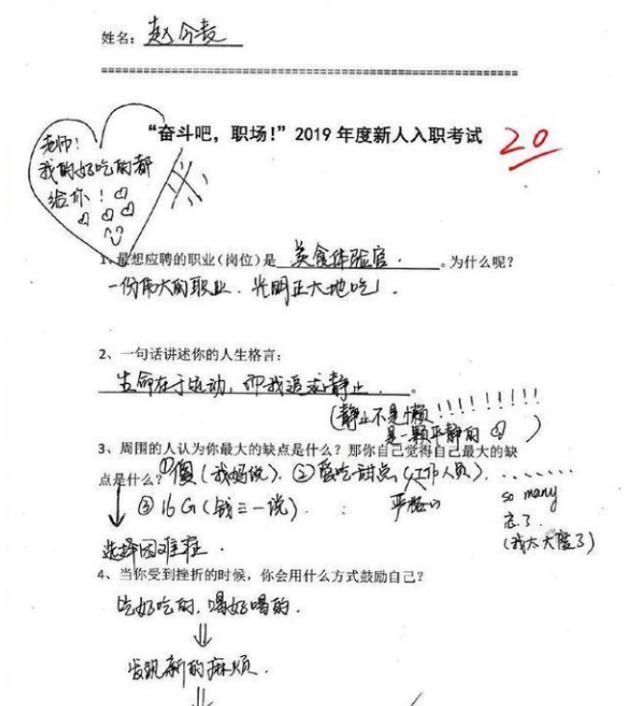 姓名：赵今麦
“奋斗吧，职场！”2019年度新人入职考试
20
老师！
我的好吃的都
给你！
1、最想应聘的职业（岗位）是 美食体验官. 。为什么呢？
一份伟大的职业. 光明正大地吃！.
2、一句话讲述你的人生格言：
生命在于运动，而我追求静止.。
（静止不是懒!!!!!!!!!
是一颗平静的 ）
3、周围的人认为你最大的缺点是什么？那你自己觉得自己最大的缺
点是什么？①傻（我妈说）. ②爱吃甜点（工作人员）. .......
③16G（钱三一说）.
so many
忘了.
（我太大condition了）
选择困难症.
4、当你受到挫折的时候，你会用什么方式鼓励自己？
吃好吃的，喝好喝的.
⇓
发现新的麻烦.
⇓